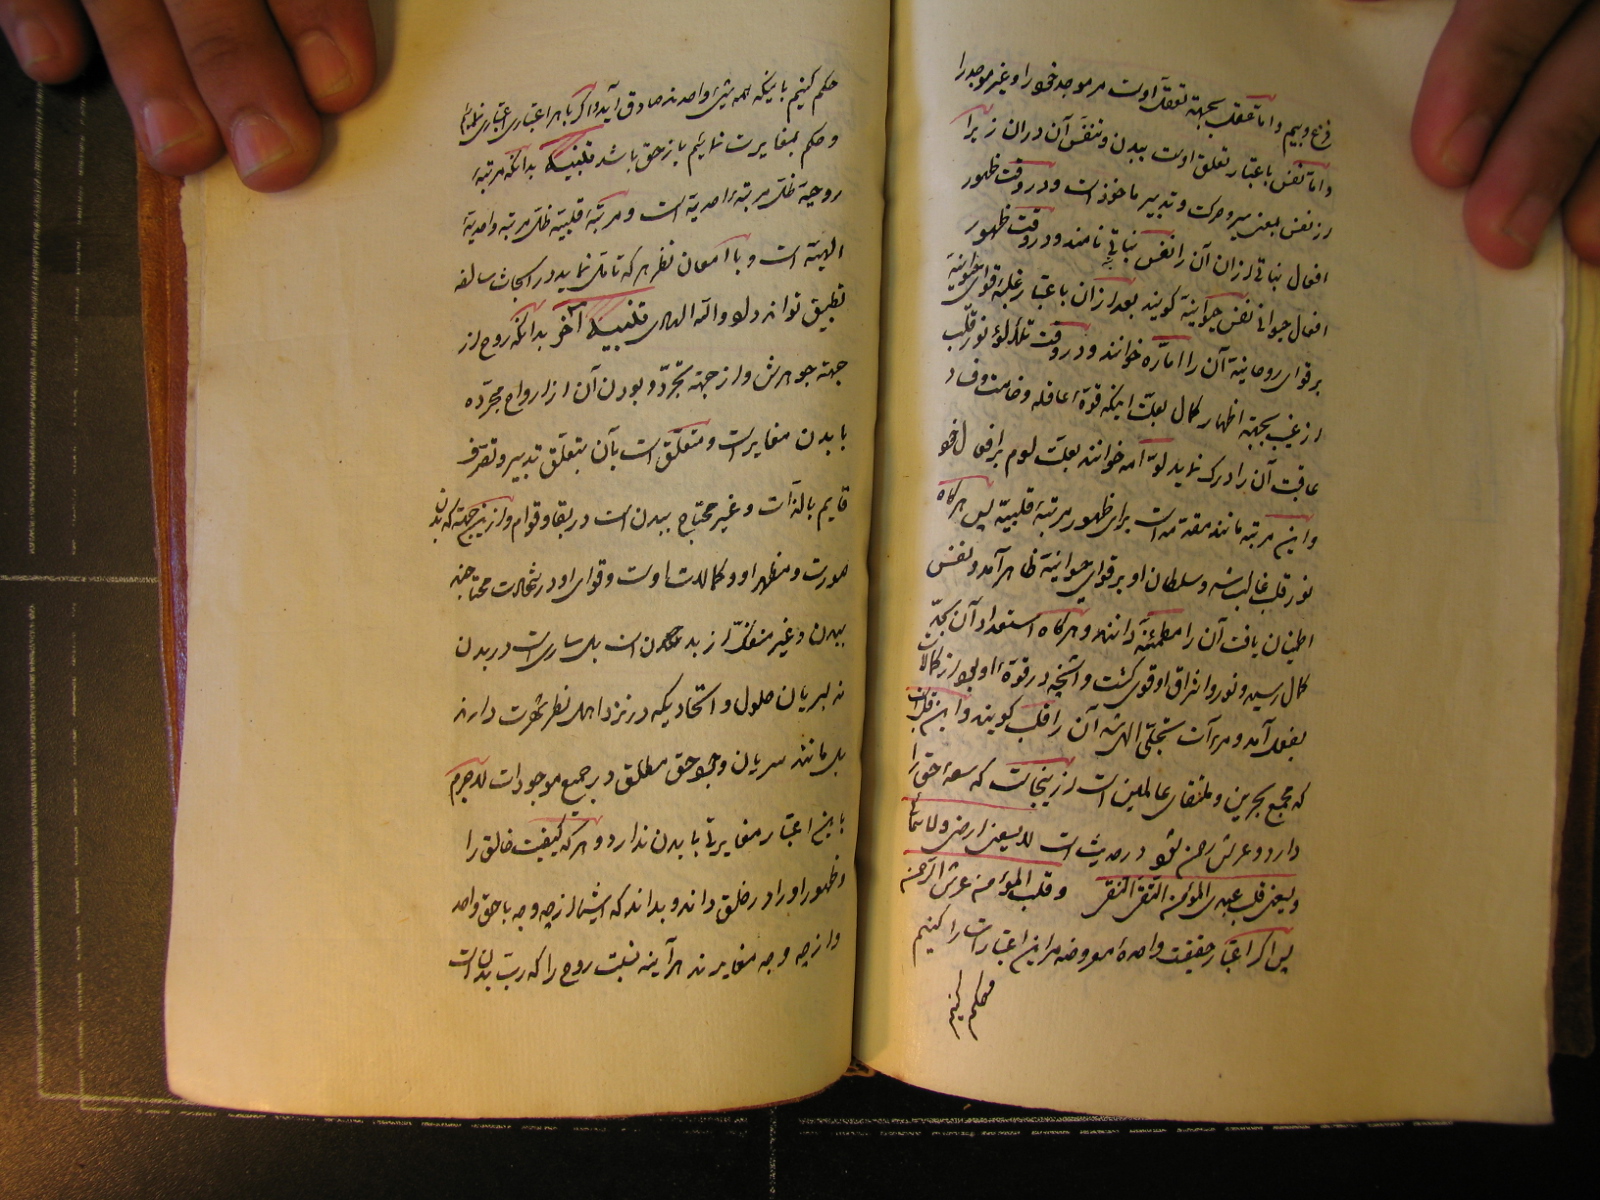 فزع و بیم و اما عقل بجهة تعقل اوست مر موجد خود را و غیر موجد را
و اما نفس باعتبار تعلق اوست ببدن و تنفس آن در ان زیرا
از نفس بمعنی سیر و حرکت و تدبیر ماخوذ است و در وقت ظهور
افعال نباتی از ان آن را نفس نباتی نامند و در وقت ظهور
افعال حیوانی نفس حیوانیة کویند بعد از ان باعتبار غلبة قوای حیوانیة
بر قوای روحانیة آن را اماره خوانند و در وقت تلألؤ نور قلب
از غیب بجهة اظهار کمال بعلت اینکه قوة عاقله وخامت و فساد
عاقبت آن را درک نماید لوامه خوانند بعلت لوم بر افعال خود
و این مرتبه مانند مقدمه است برای ظهور مرتبۀ قلبیة پس هرکاه
نور قلب غالب شد و سلطان او بر قوای حیوانیة ظاهر آمد و نفس
اطمینان یافت آن را مطمئنة دانند و هرکاه استعداد آن بحد
کمال رسید و نور و اشراق او قوی کشت و آنچه در قوة او بود از کمالات
بفعل آمد و مرآت تجلی الهی شد آن را قلب کویند و این قلب است
که مجمع بحرین و ملتقای عالمین است ازینجاست که سعۀ حق را
دارد و عرش رحمن بود در حدیث است لا یسعنی ارضی و لا سمائی
و یسعنی قلب عبدی المؤمن التقی النقی و قلب المؤمن عرش الرحمن
پس اکر اعتبار حقیقت واحدۀ معروضه مر این اعتبارات را کنیم
حکم کنیم
حکم کنیم باینکه همه شیئ واحدند صادق آید و اکر با هر اعتباری اعتباری نمائیم
و حکم بمغایرت نمائیم باز حق باشد تنبیه بدانکه مرتبۀ
روحیة ظل مرتبۀ احدیة است و مرتبۀ قلبیة ظل مرتبه واحدیة
الهیة است و با امعان نظر هر که تامل نماید در ابحاث سالفه
تطبیق تواند داد و الله الهادی تنبیه آخر بدانکه روح از
جهة جوهرش و از جهة تجرد و بودن آن از ارواح مجرده
با بدن مغایرست و متعلق است بآن بتعلق تدبیر و تصرف
قایم بالذات و غیر محتاج ببدن است در بقا و قوام و ازین جهة که بدن
صورت و مظهر او و کمالات اوست و قوای او در شهادت محتاجند
ببدن و غیر منفک از بدن است بل ساری است در بدن
نه بسریان حلول و اتحادیکه در نزد اهل نظر شهرت دارند
بل مانند سریان وجود حق مطلق در جمیع موجودات لاجرم
باین اعتبار مغایرتی با بدن ندارد و هر که کیفیت خالق را
و ظهور او را در خلق داند و بداند که اشیا از چه وجه با حق واحد
و از چه وجه مغایرند هرآینه نسبت روح را که رب بدن است